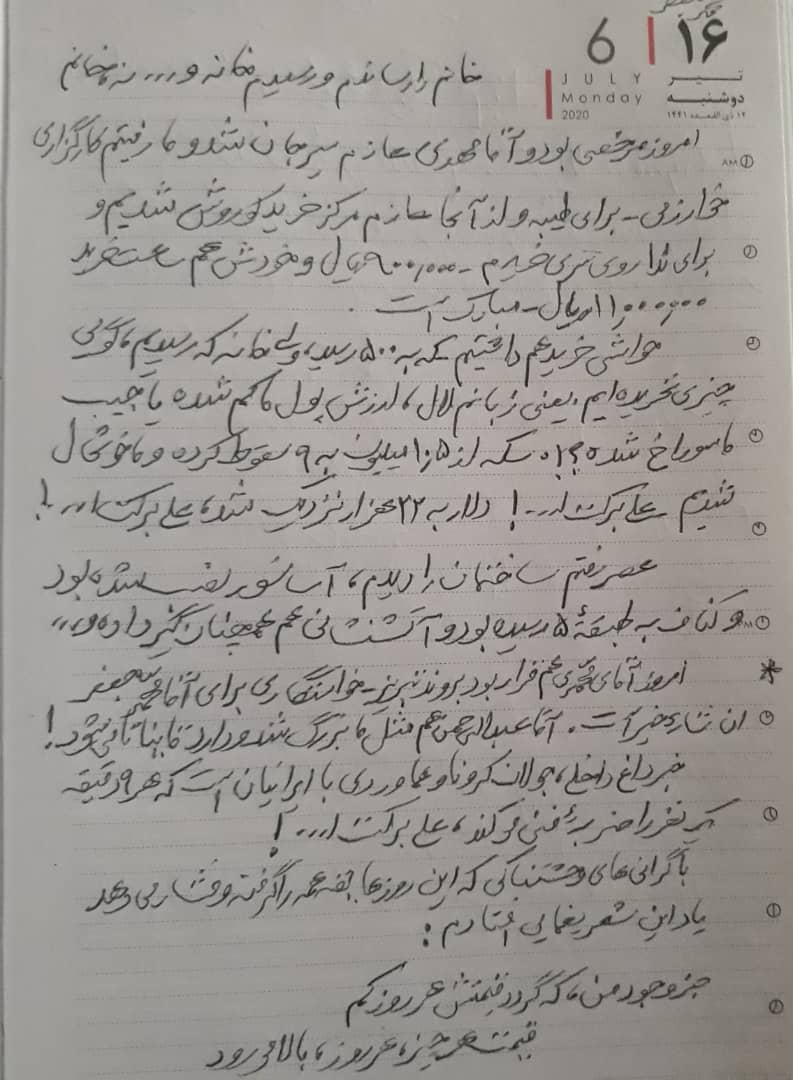 ۱۶
6
تیر
JULY
دوشنبه
Monday
۱۴ ذی القعده ۱۴۴۱
2020
خانم را رساندم و رسیدم خانه و... نه خانم
امروز مرخصی بود و آقا مهدی عازم سیرجان شد و ما رفتیم کارگزاری
خوارزمی - برای طیبه و از آنجا عازم مرکز خرید کوروش شدیم و
برای ندا روی تری خریدم - ۹۰۰،۰۰۰ ریال و خودش هم ساعت خرید
۱۱،۰۰۰،۰۰۰ ریال - مبارک است.
حواشی خرید هم داشتیم که به ۵۰۰ رسید، ولی خانه که رسیدیم، گویی
چیزی نخریده ایم، یعنی زبانم لال، ارزش پول ما کم شده یا جیب
ما سوراخ شده؟! سکه از ۱۰،۵ میلیون به ۹ سقوط کرده و ما خوشحال
شدیم علی برکت ا... ! دلار به ۲۲ هزار نزدیک شد، علی برکت ا... !
عصر رفتم ساختمان را دیدم، آسانسور نصب شده بود
و کناف به طبقهٔ ۵ رسیده بود و آتشنشانی هم همچنان گیر داده و...
* امروز آقای هم قرار بود بروند تبریز - خواستگاری برای آقا محمد جعفر
ان شاء خیر است. آقا عبدالرحمن هم مثل ما بزرگ شد و دارد
خبر داغ داخلی، جولان کرونا و هماوردی با ایرانیان است که هر ۹ دقیقه
یک نفر را ضربه فنی می کند، علی برکت ا... !
با گرانی های وحشتناکی که این روزها یقه همه را گرفته و فشار می دهد
یاد این شعر یغمایی افتادم:
جز وجود من، که گردد قیمتش هر روز کم
قیمت هر چیز، هر روز، بالا می رود